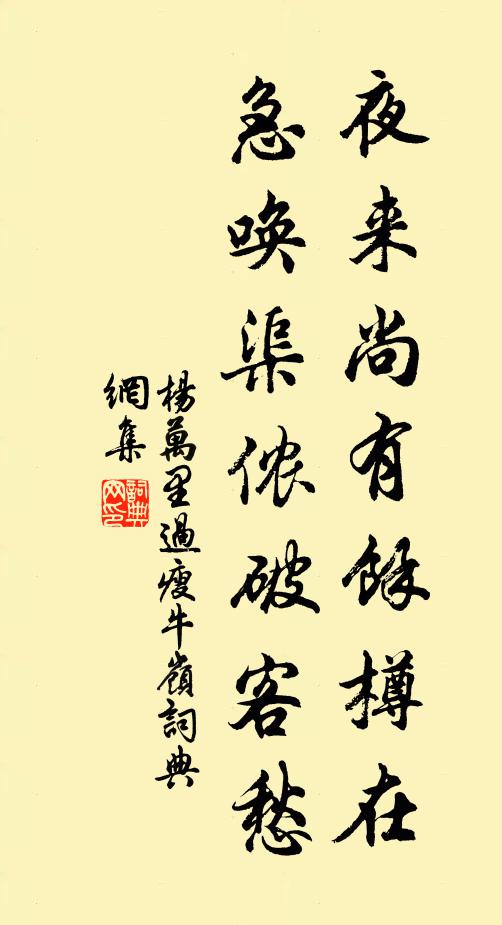 夜来尚有餘樽在
急唤渠侬破客愁
楊萬里過瘦牛嶺詞典
網集
詞典网印